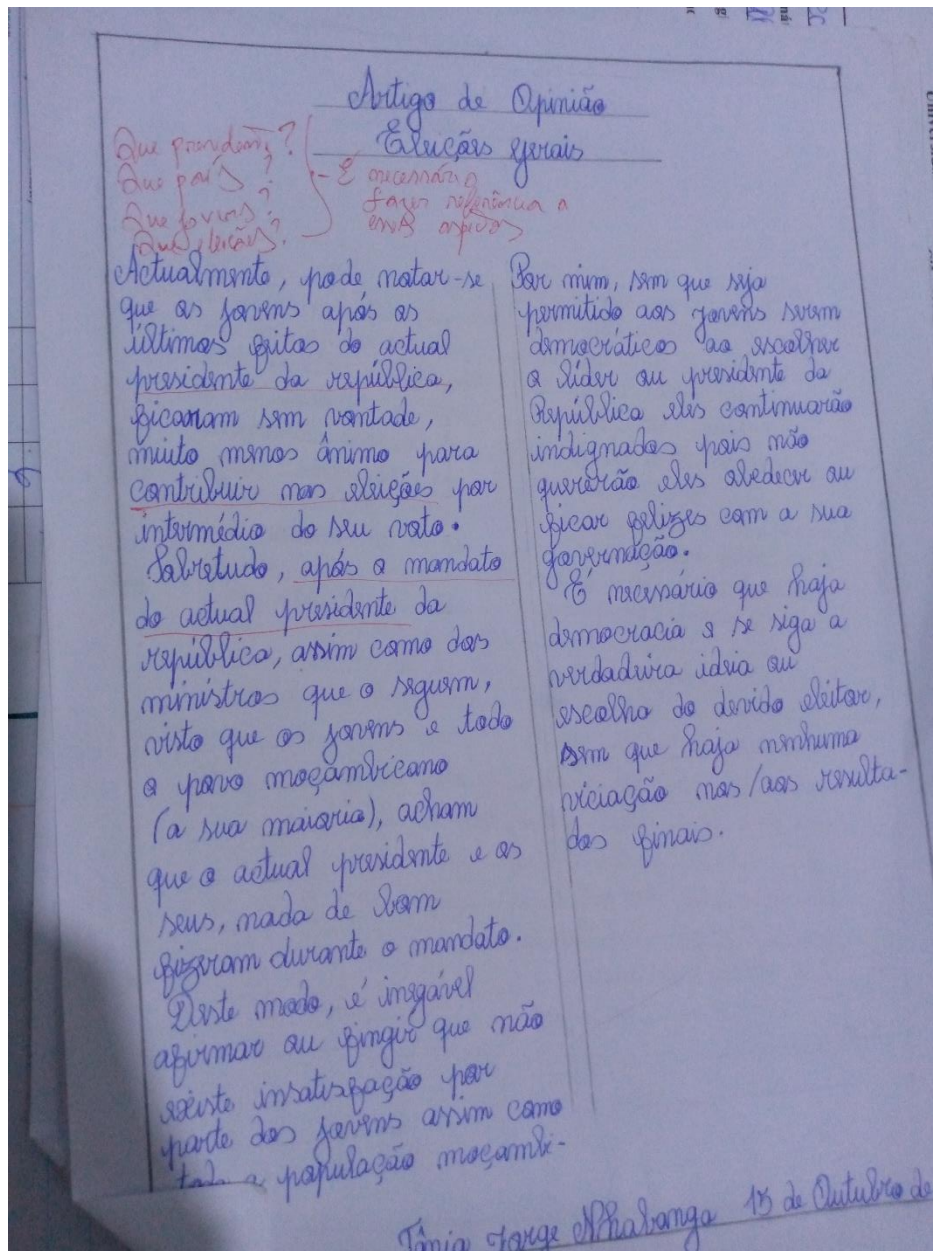 Artigo de Opinião
Eleições gerais
Que presidente?
Que país?
Que jovens?
Que eleições?
- É necessário
fazer referência a
esses aspectos
Actualmente, pode notar-se
que os jovens após os
últimos feitos do actual
presidente da república,
ficaram sem vontade,
muito menos ânimo para
contribuir nas eleições por
intermédio do seu voto.
Sobretudo, após o mandato
do actual presidente da
república, assim como dos
ministros que o seguem,
visto que os jovens e todo
o povo moçambicano
(a sua maioria), acham
que o actual presidente e os
seus, nada de bom
fizeram durante o mandato.
Deste modo, é inegável
afirmar ou fingir que não
existe insatisfação por
parte dos jovens assim como
toda a população moçambi-
Por mim, sem que seja
permitido aos jovens serem
democráticos ao escolher
o líder ou presidente da
República eles continuarão
indignados pois não
quererão eles obedecer ou
ficar felizes com a sua
governação.
É necessário que haja
democracia e se siga a
verdadeira ideia ou
escolha do devido eleitor,
sem que haja nenhuma
viciação nos/aos resulta-
dos finais.
Tânia Jorge Nhabanga 15 de Outubro de